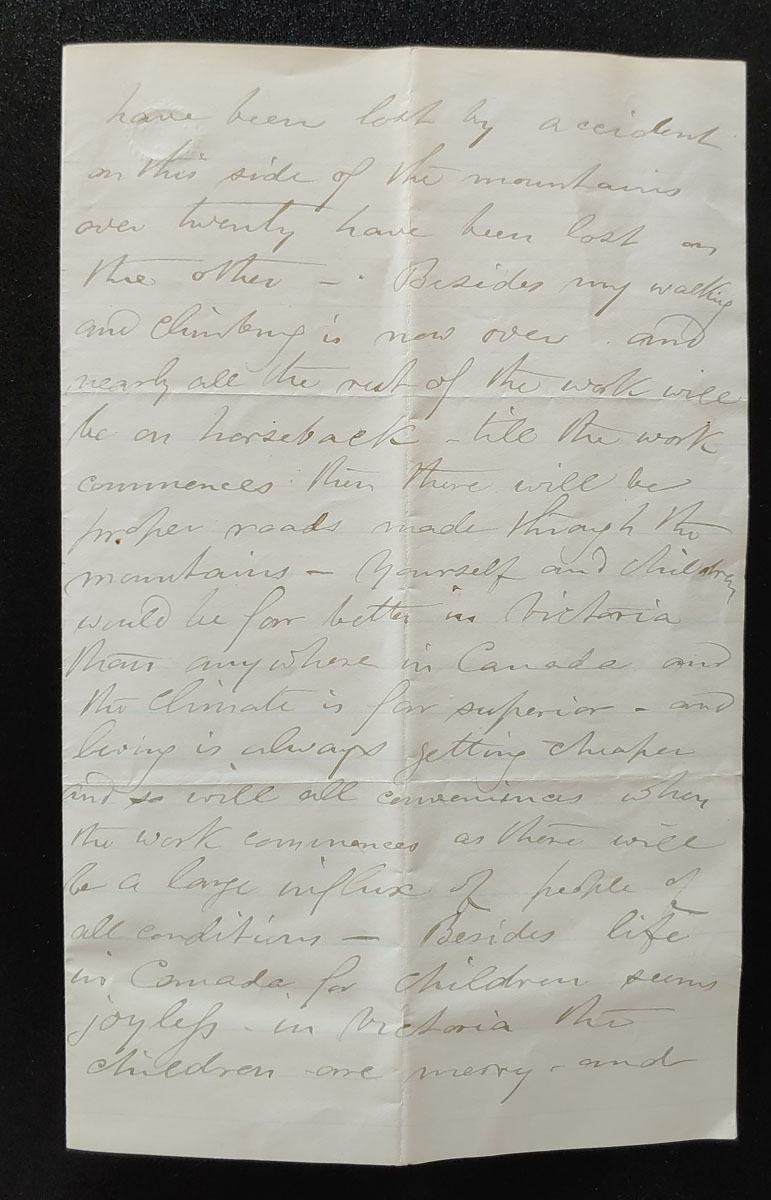 have been lost by accident
on this side of the mountains
over twenty have been lost on
the other - . Besides my walking
and climbing is now over . and
nearly all the rest of the work will
be on horseback - till the work
commences then there will be
proper roads made through the
mountains - Yourself and children
would be far better in Victoria
than anywhere in Canada and
the climate is far superior - and
living is always getting cheaper
and so will all conveniences when
the work commences as there will
be a large influx of people of
all conditions - Besides life
in Canada for children seems
joyless - in Victoria the
children are merry - and